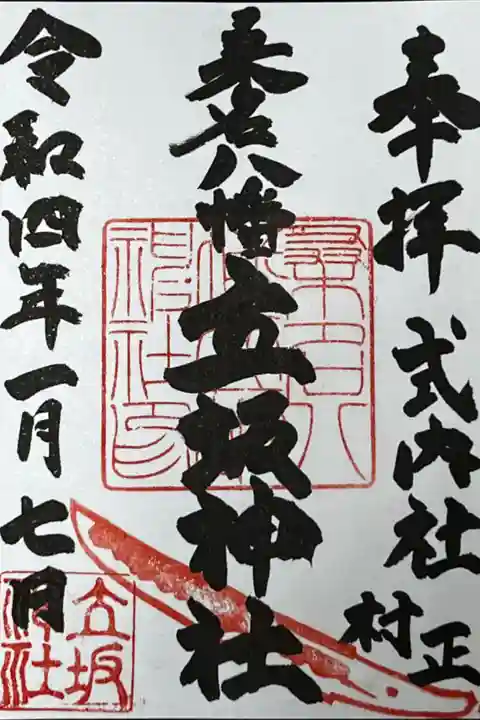 奉拝 式内社
村正
桑名八幡 立坂神社
令和四年一月七日
立坂神社